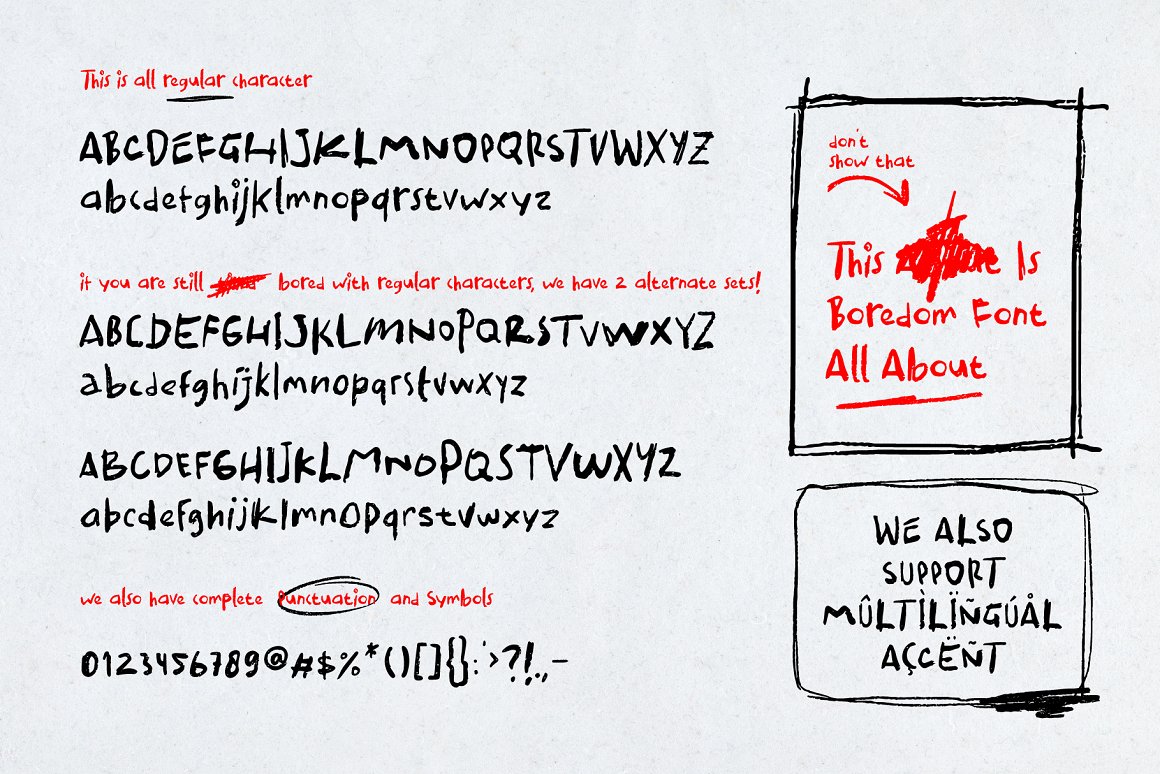 This is all regular character
ABCDEFGHIJKLMNOPQRSTVWXYZ
abcdefghijklmnopqrstvwxyz
if you are still bored with regular characters, we have 2 alternate sets!
ABCDEFGHIJKLMNOPQRSTVWXYZ
abcdefghijklmnopqrstvwxyz
ABCDEFGHIJKLMNOPQSTVWXYZ
abcdefghijklmnopqrstvwxyz
we also have complete Punctuation and Symbols
0123456789@#$%*()[]{}:'>?!.,–
don't
show that
This Is
Boredom Font
All About
WE ALSO
SUPPORT
MÛLTÌLÏÑGÚÅL
AÇCËÑT